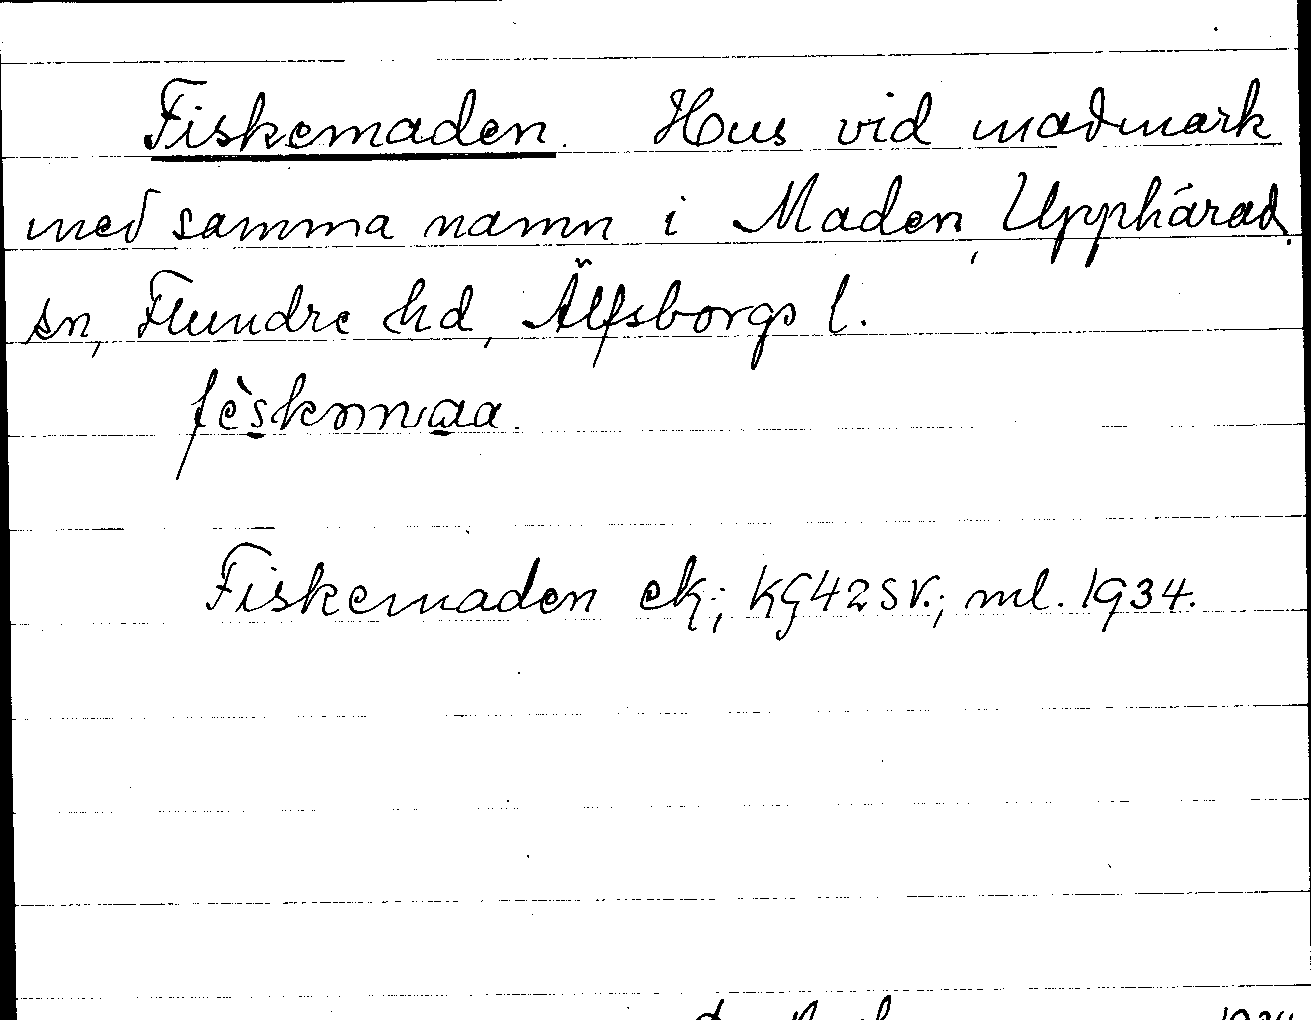 Fiskemaden. Hus vid madmark
med samma namn i Maden, Upphärad
sn, Flundre hd, Älfsborgs l.
fèskmmaa.
Fiskemaden ek; KG42SV.; ml. 1934.